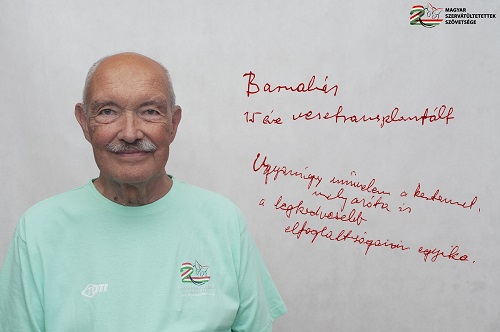 MAGYAR
SZERVÁTÜLTETETTEK
SZÖVETSÉGE
Barnabás
15 éve vesetranszplantált
Ugyanúgy művelem a kertemet,
mely azóta is
a legkedvesebb
elfoglaltságaim egyike.